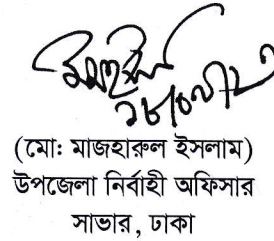 (মো: মাজহারুল ইসলাম)
উপজেলা নির্বাহী অফিসার
সাভার, ঢাকা